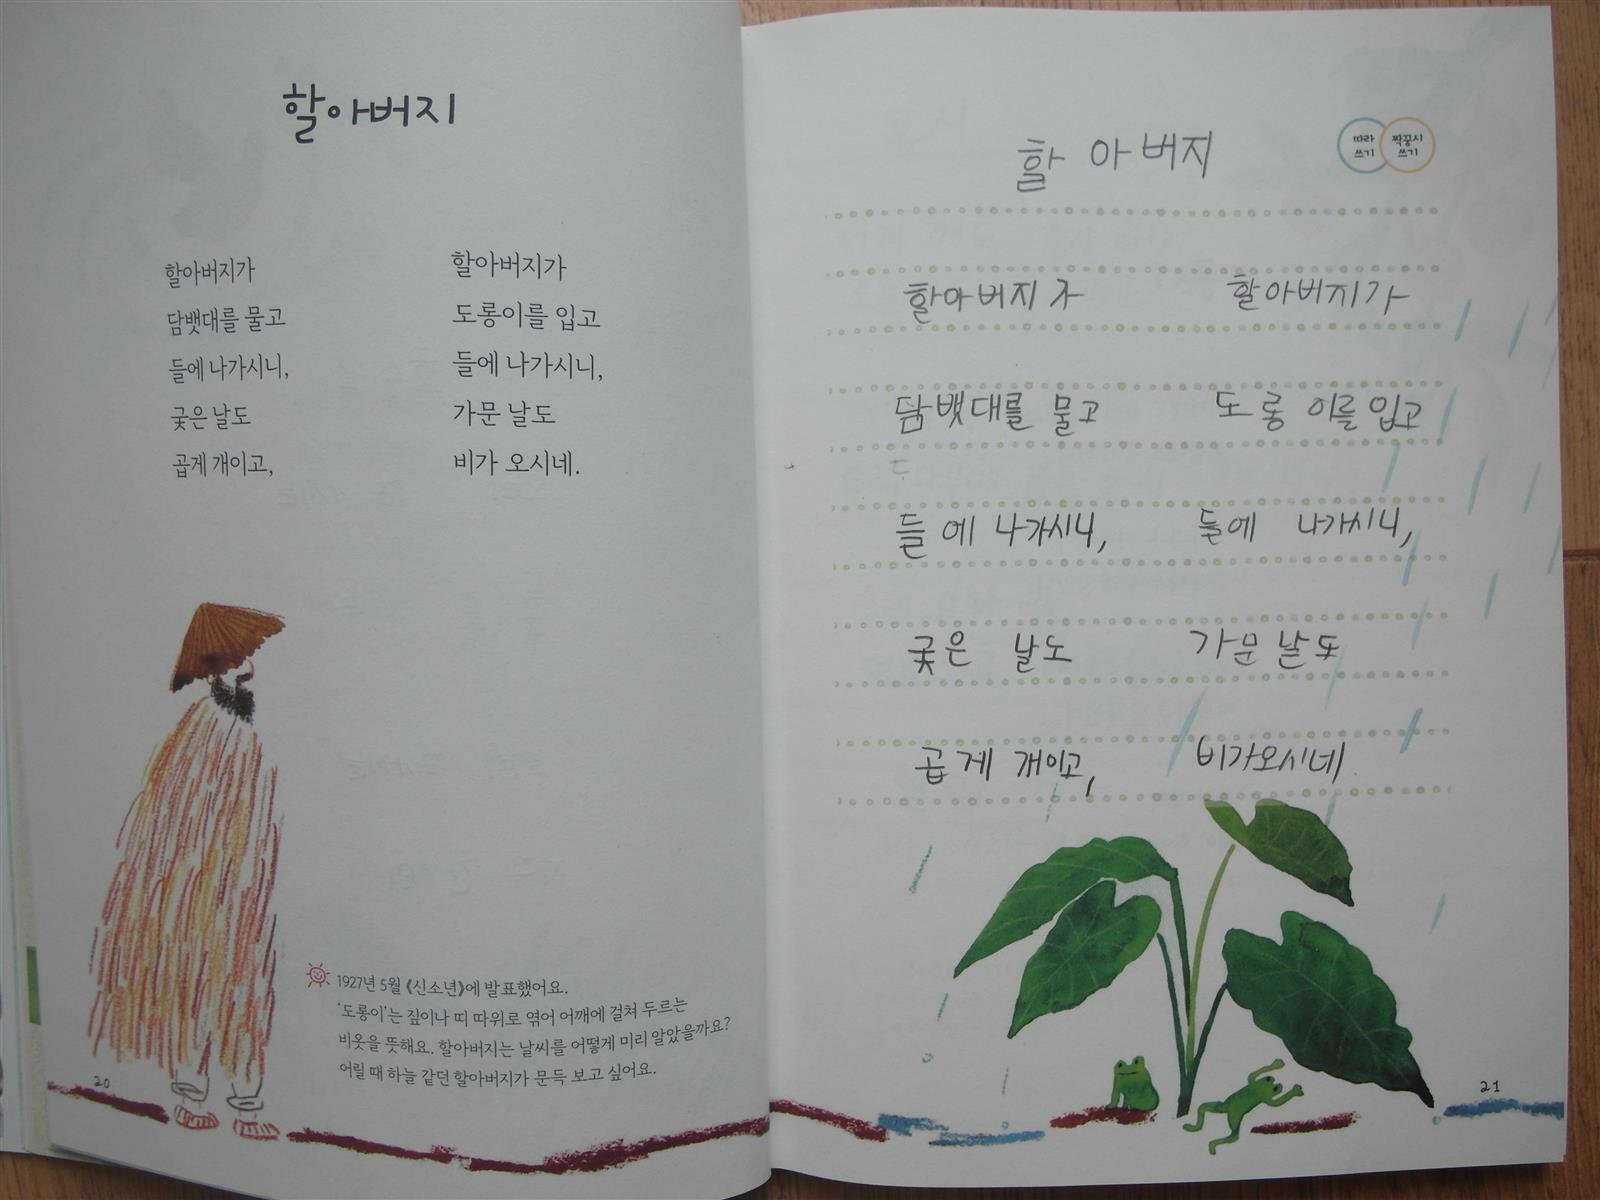 할아버지
할아버지가
담뱃대를 물고
들에 나가시니,
궂은 날도
곱게 개이고,
할아버지가
도롱이를 입고
들에 나가시니,
가문 날도
비가 오시네.
1927년 5월 《신소년》에 발표했어요.
'도롱이'는 짚이나 띠 따위로 엮어 어깨에 걸쳐 두르는
비옷을 뜻해요. 할아버지는 날씨를 어떻게 미리 알았을까요?
어릴 때 하늘 같던 할아버지가 문득 보고 싶어요.
20
따라
쓰기
짝꿍시
쓰기
할아버지
할아버지가
담뱃대를 물고
들에 나가시니,
궂은 날도
곱게 개이고,
할아버지가
도롱이를 입고
들에 나가시니,
가문 날도
비가오시네.
21